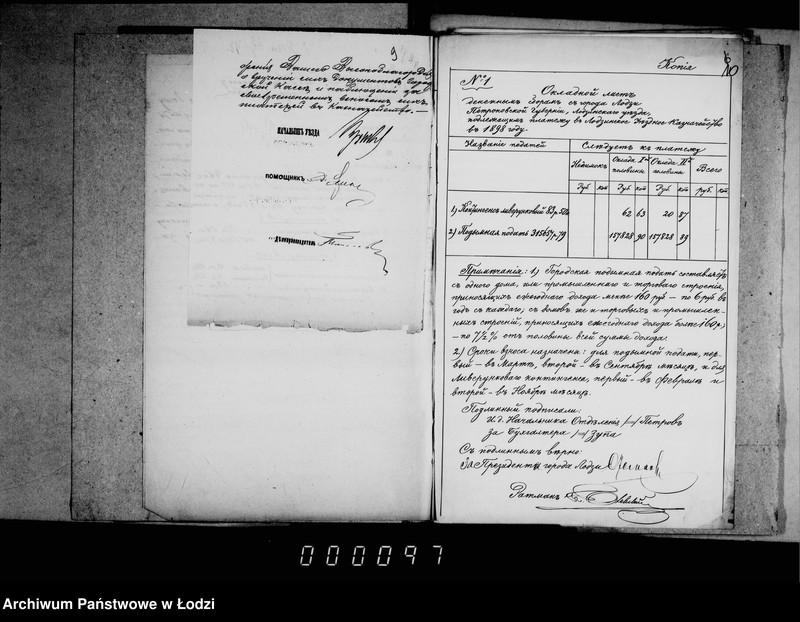 9
о врученіи сихъ документовъ Город-
ской Кассѣ и наблюденіи за
своевременнымъ взносомъ сихъ
платежей въ Казначейство. —
НАЧАЛЬНИКЪ УѢЗДА
ПОМОЩНИКЪ
ДѢЛОПРОИЗВОДИТЕЛЬ
Копія
10
№ 1
Окладной листъ
денежнымъ сборамъ съ города Лодзи
Петроковской Губерніи, Лодзинскаго уѣзда,
подлежащихъ платежу въ Лодзинское Уѣздное Казначейство
въ 1898 году.
Названіе податей
Слѣдуетъ къ платежу
Недоимокъ
Оклада Iой половины
Оклада IIой половины
Всего
Руб коп Руб коп Руб коп руб. коп
1) Контингенсъ ливерунковый 83 р. 50 к. 62 63 20 87
2) Подымная подать 315657 р. 79 157828 90 157828 89
Примѣчанія: 1) Городская подымная подать составляетъ
съ одного дома, или промышленнаго и торговаго строенія,
приносящихъ ежегоднаго дохода менѣе 160 руб. — по 6 руб. въ
годъ съ каждаго; съ домовъ же и торговыхъ и промышлен-
ныхъ строеній, приносящихъ ежегоднаго дохода болѣе 160 р.,
— по 7 1/2 % отъ половины всей суммы дохода.
2) Сроки взноса назначены: для подымной подати, пер-
вый — въ Мартѣ, второй — въ Сентябрѣ мѣсяцѣ, и для
Ливерунковаго контингенса, первый — въ Февралѣ и
второй — въ Ноябрѣ мѣсяцѣ.
Подлинный подписали:
И. д. Начальника Отдѣленія /—/ Петровъ
За Бухгалтера /—/ Зупа
Съ подлиннымъ вѣрно:
За Президента города Лодзи
Ратманъ
000097
Archiwum Państwowe w Łodzi